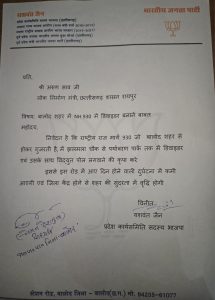 यशवंत जैन
भारतीय जनता पार्टी
प्रति,
श्री अरुण साव जी
लोक निर्माण मंत्री, छत्तीसगढ़ शासन रायपुर
विषय: बालोद शहर में NH 930 में डिवाइडर बनाने बाबत
महोदय,
निवेदन है कि राष्ट्रीय राज मार्ग 930 जो बालोद शहर से
होकर गुजरती है में झलमला चौक से पर्यावरण पार्क तक में डिवाइडर
एवं उसके साथ विद्युत पोल लगवाने की कृपा करें
इससे इस रोड में आए दिन होने वाली दुर्घटना में कमी
आएगी एवं जिला केंद्र होने से शहर की सुंदरता में वृद्धि होगी
विनीत
यशवंत जैन
प्रदेश कार्यसमिति सदस्य भाजपा
स्टेशन रोड, बालोद जिला - बालोद(छ.ग.) मो. 94255-61077